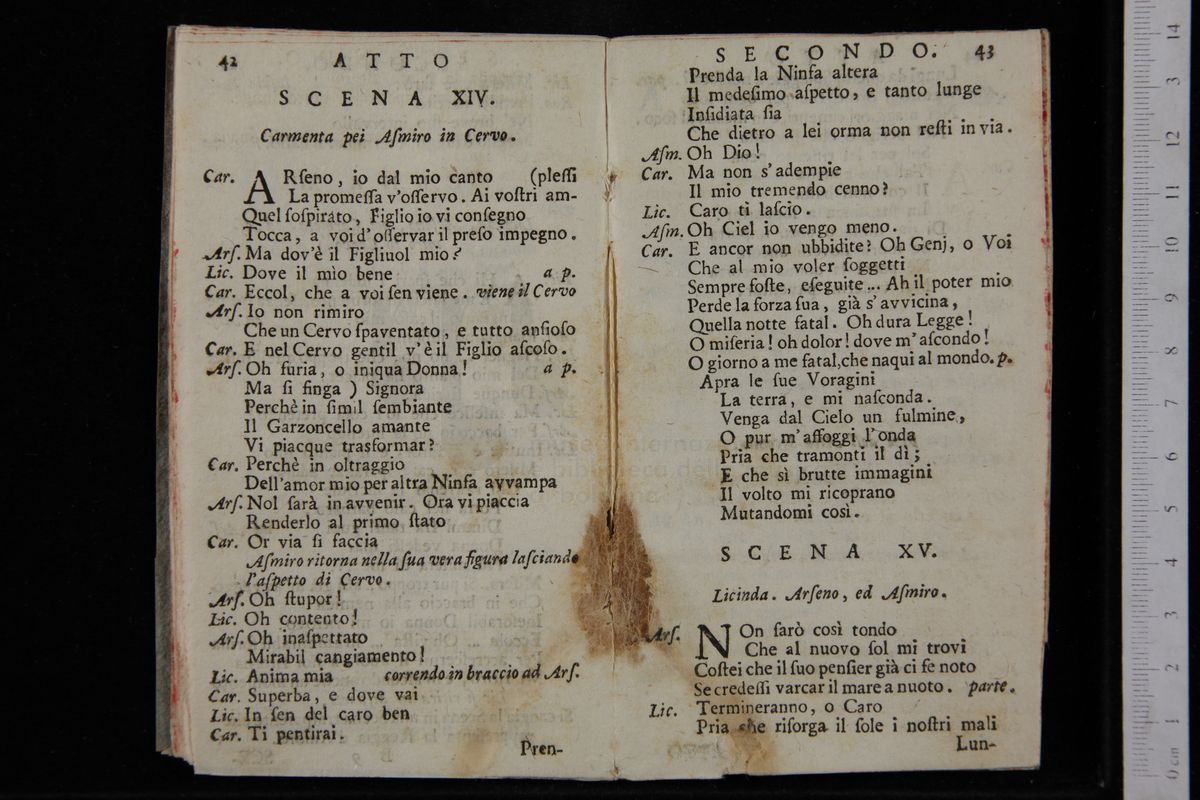 42 ATTO
SCENA XIV.
Carmenta pei Aſmiro in Cervo.
Car. ARſeno, io dal mio canto (pleſſi
La promeſſa v'oſſervo. Ai voſtri am-
Quel ſoſpirato, Figlio io vi conſegno
Tocca, a voi d'oſſervar il preſo impegno.
Arſ. Ma dov'è il Figliuol mio?
Lic. Dove il mio bene a p.
Car. Eccol, che a voi ſen viene. viene il Cervo
Arſ. Io non rimiro
Che un Cervo ſpaventato, e tutto anſioſo
Car. E nel Cervo gentil v'è il Figlio aſcoſo.
Arſ. Oh furia, o iniqua Donna! a p.
Ma ſi finga ) Signora
Perchè in ſimil ſembiante
Il Garzoncello amante
Vi piacque trasformar?
Car. Perchè in oltraggio
Dell'amor mio per altra Ninfa avvampa
Arſ. Nol ſarà in avvenir. Ora vi piaccia
Renderlo al primo ſtato
Car. Or via ſi faccia
Aſmiro ritorna nella ſua vera figura laſciando
l'aſpetto di Cervo.
Arſ. Oh ſtupor!
Lic. Oh contento!
Arſ. Oh inaſpettato
Mirabil cangiamento!
Lic. Anima mia correndo in braccio ad Arſ.
Car. Superba, e dove vai
Lic. In ſen del caro ben
Car. Ti pentirai.
Pren-
SECONDO. 43
Prenda la Ninfa altera
Il medeſimo aſpetto, e tanto lunge
Inſidiata ſia
Che dietro a lei orma non reſti in via.
Aſm. Oh Dio!
Car. Ma non s'adempie
Il mio tremendo cenno?
Lic. Caro ti laſcio.
Aſm. Oh Ciel io vengo meno.
Car. E ancor non ubbidite? Oh Genj, o Voi
Che al mio voler ſoggetti
Sempre foſte, eſeguite... Ah il poter mio
Perde la forza ſua, già s'avvicina,
Quella notte fatal. Oh dura Legge!
O miſeria! oh dolor! dove m'aſcondo!
O giorno a me fatal, che naqui al mondo. p.
Apra le ſue Voragini
La terra, e mi naſconda.
Venga dal Cielo un fulmine,
O pur m'affoggi l'onda
Pria che tramonti il dì;
E che sì brutte immagini
Il volto mi ricoprano
Mutandomi così.
SCENA XV.
Licinda. Arſeno, ed Aſmiro.
Arſ. NOn ſarò così tondo
Che al nuovo ſol mi trovi
Coſtei che il ſuo penſier già ci fe noto
Se credeſſi varcar il mare a nuoto. parte.
Lic. Termineranno, o Caro
Pria che riſorga il ſole i noſtri mali
Lun-